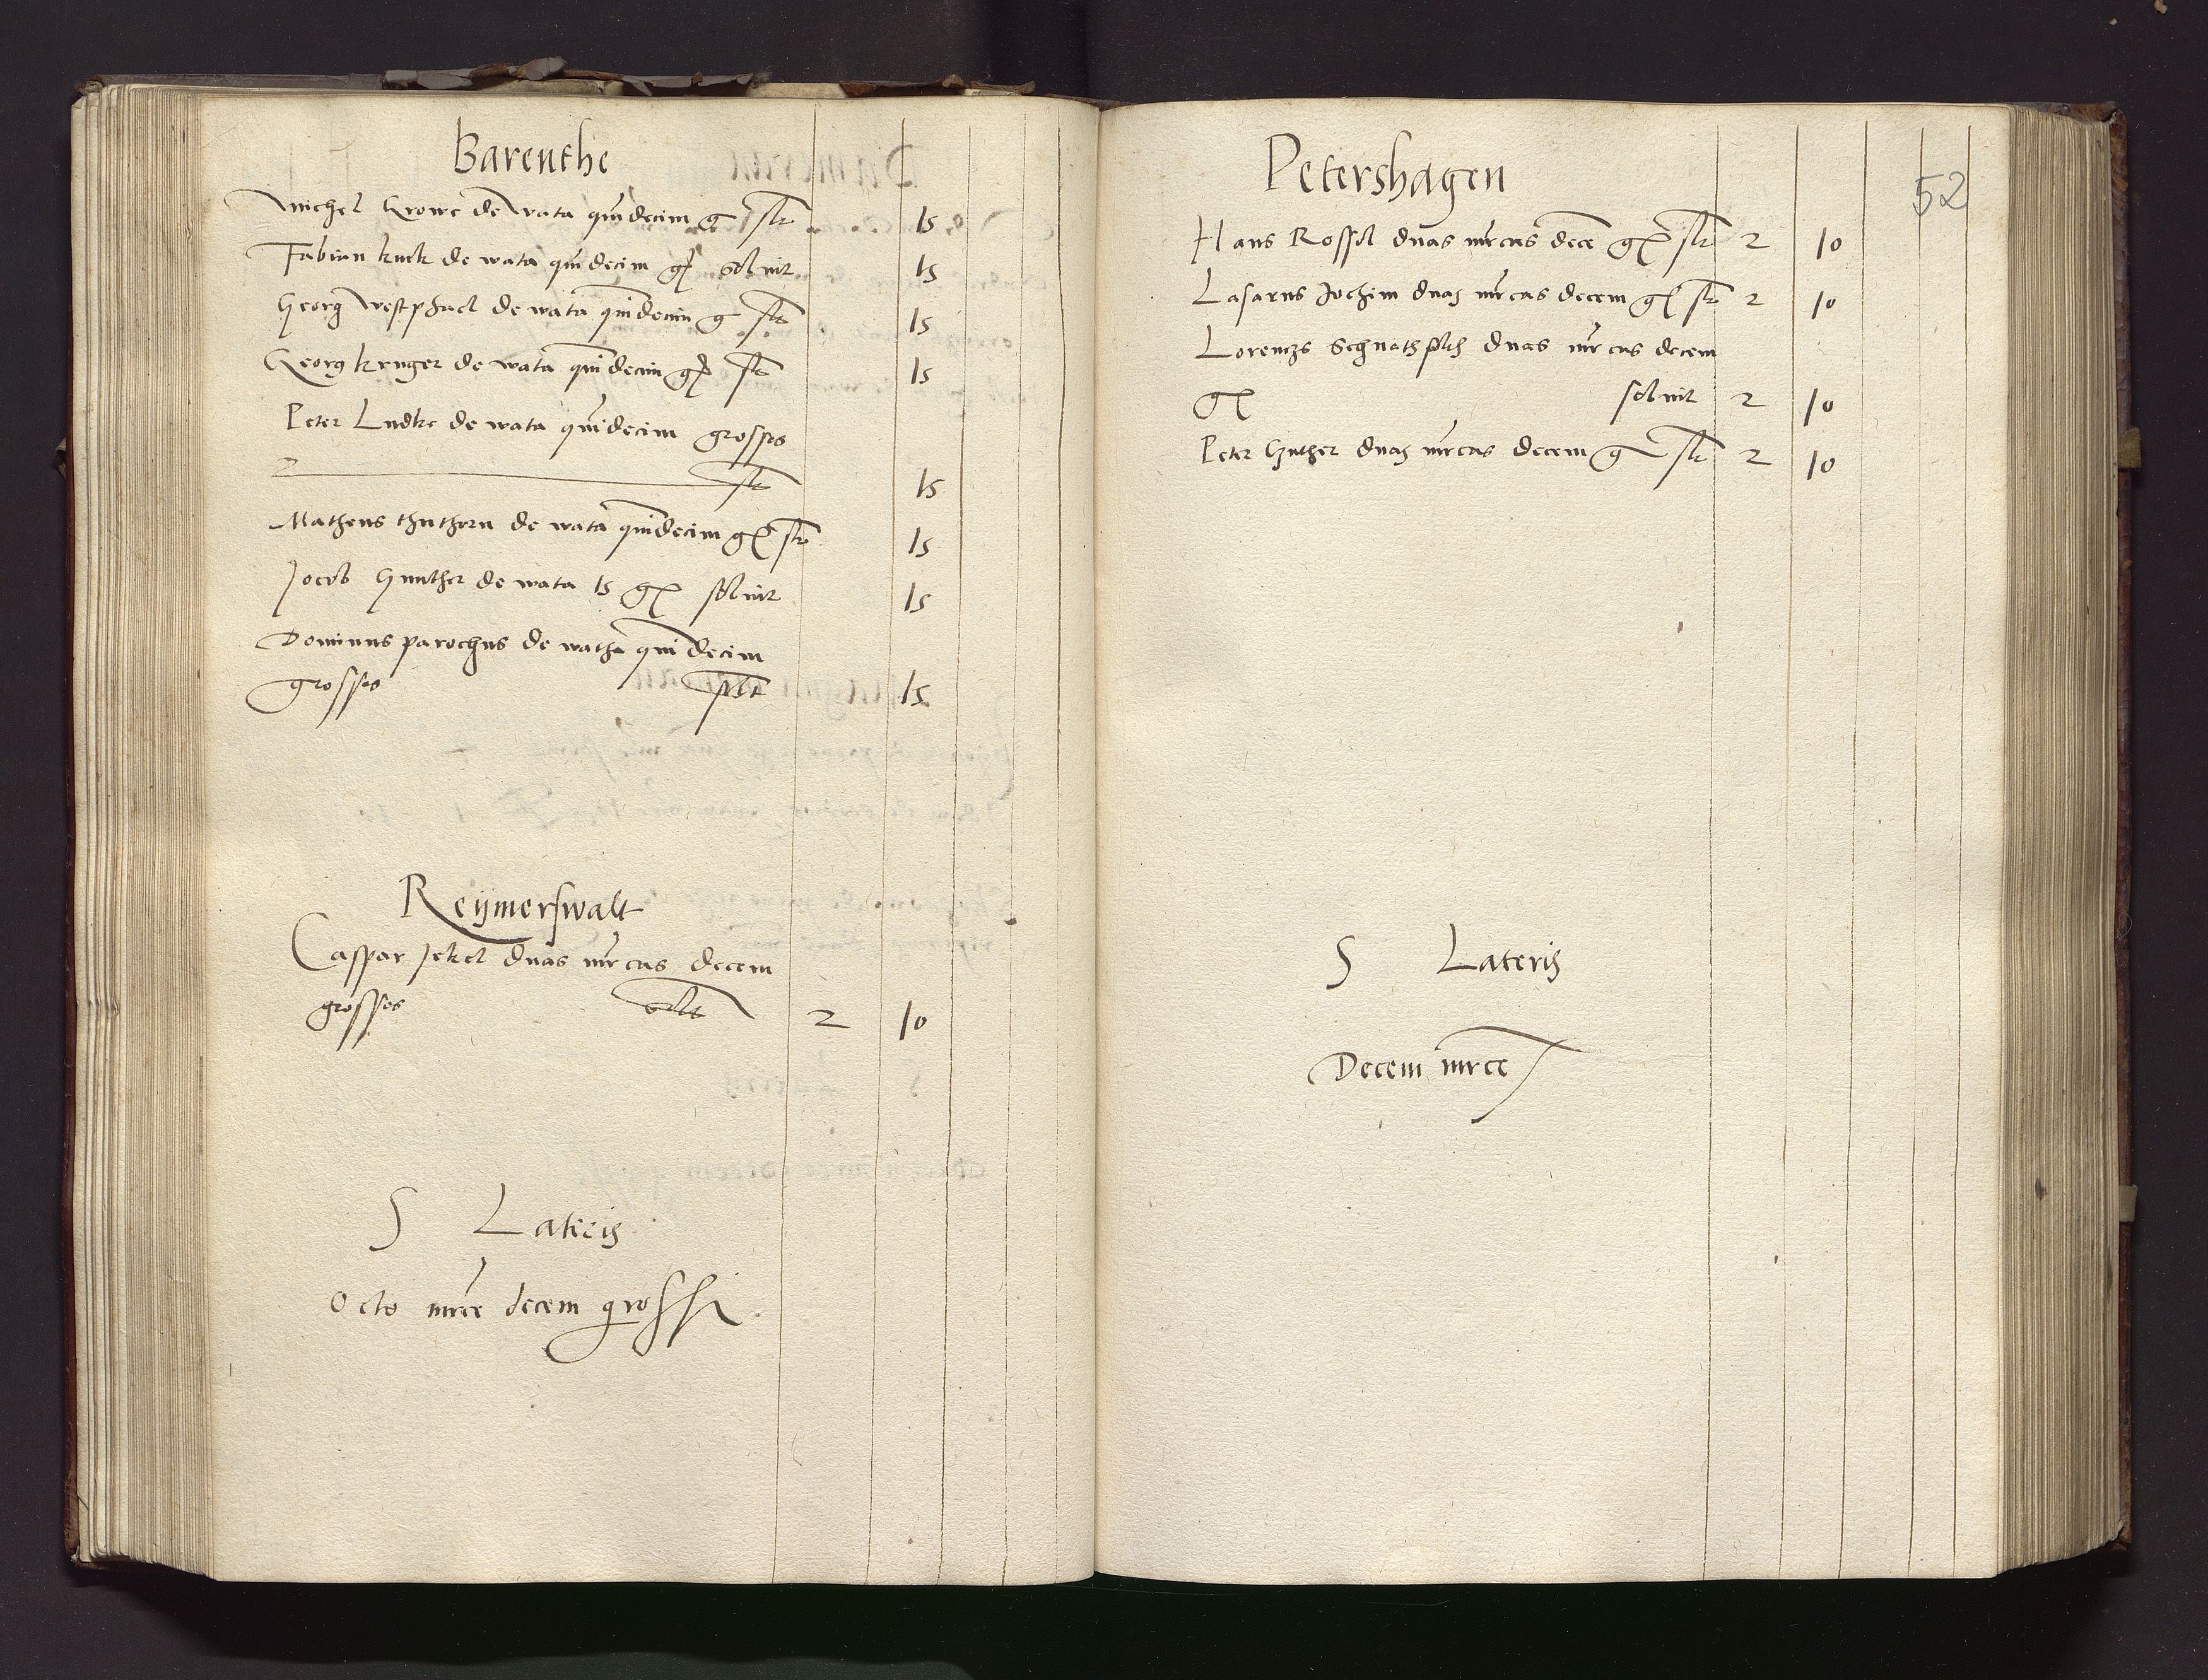 Barenthe
Michel Growe de wata quidecim g slt 15
Fabian kuck de wata quidecim g solvit 15
Georg Westphael de wata quidecim g slt 15
Georg kruger de wata quidecim g slt 15
Peter Ludke de wata quidecim grosses
slt 15
Matheus de wata quidecim g slt 15
Jocob Gunther de wata 15 g solvit 15
Dominus parochus de watha quidecim
grosses slt 15
Reÿmerswalt
Caspar Jekel duas mrcas decem
grosses solt 2 10
S Lateris
Octo mrce decem grossi
52
Petershagen
Hans Rossol duas mrcas dece g slt 2 10
Lasarus Jochim duas mrcas decem g slt 2 10
Lorencz duas mrcas decem
g solvit 2 10
Peter Gunther duas mrcas decem g slt 2 10
S Lateris
Decem mrce